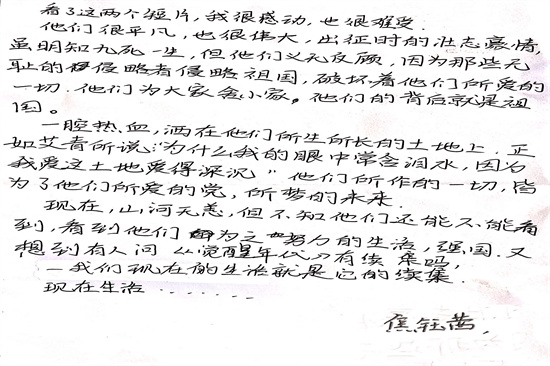 看了这两个短片，我很感动，也很难受．
他们很平凡，也很伟大，出征时的壮志豪情，
虽明知九死一生，但他们义无反顾，因为那些无
耻的侵略者侵略祖国，破坏着他们所爱的
一切．他们为大家舍小家。他们的背后就是祖
国。
一腔热血，洒在他们所生所长的土地上．正
如艾青所说“为什么我的眼中常含泪水，因为
我爱这土地爱得深沉”他们所作的一切，皆
为了他们所爱的党，所梦的未来．
现在，山河无恙，但不知他们还能不能看
到，看到他们为之努力的生活，强国．又
想到有人问《觉醒年代》有续集吗，
—我们现在的生活就是它的续集．
现在生活………
焦钰茜．